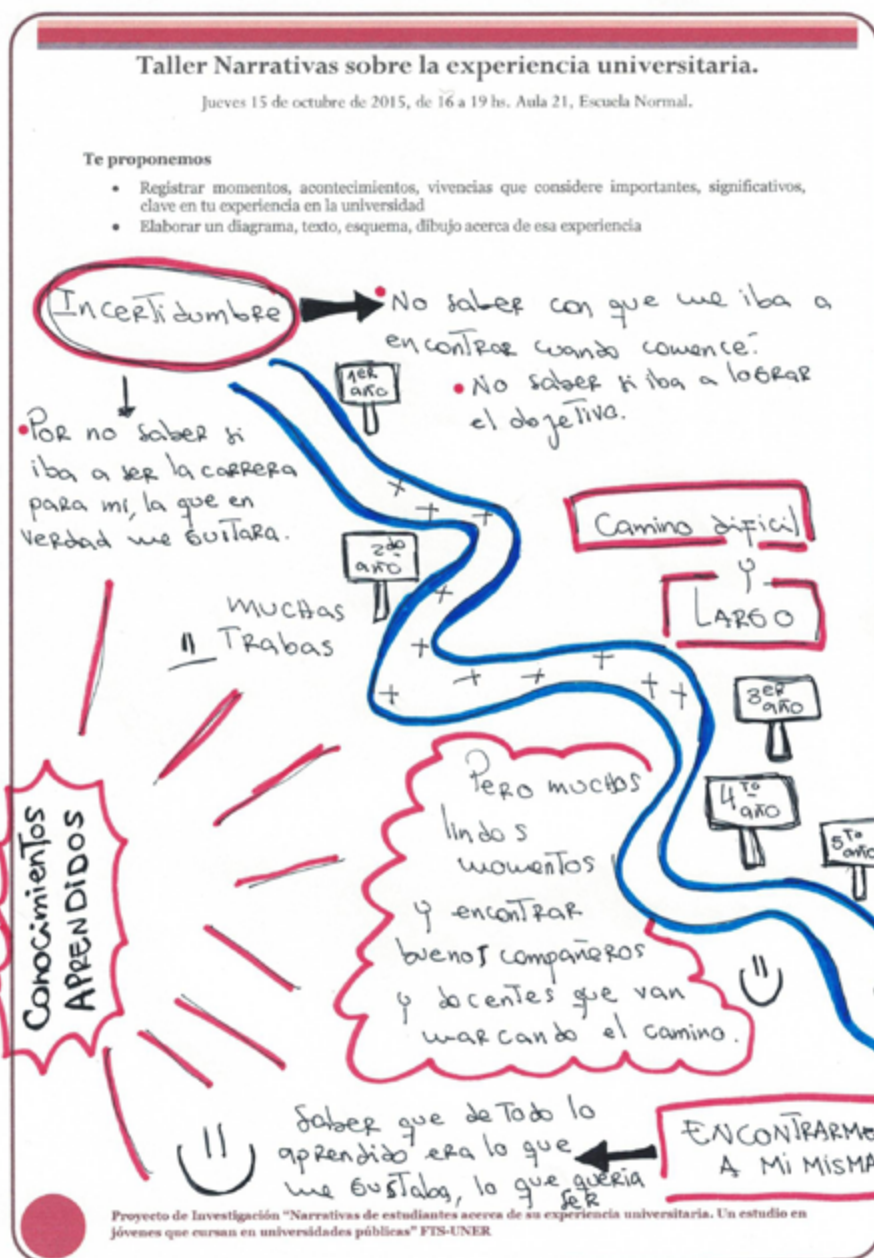 Taller Narrativas sobre la experiencia universitaria.
Jueves 15 de octubre de 2015, de 16 a 19 hs. Aula 21, Escuela Normal.
Te proponemos
• Registrar momentos, acontecimientos, vivencias que considere importantes, significativos,
clave en tu experiencia en la universidad
• Elaborar un diagrama, texto, esquema, dibujo acerca de esa experiencia
Incertidumbre
• No saber con que me iba a
encontrar cuando comencé.
• No saber si iba a lograr
el objetivo.
• Por no saber si
iba a ser la carrera
para mí, la que en
verdad me gustara.
1er
año
2do
año
Muchas
Trabas
Camino dificil
y
Largo
3er
año
4to
año
5to
año
Pero muchos
lindos
momentos
y encontrar
buenos compañeros
y docentes que van
marcando el camino.
Conocimientos
APRENDIDOS
Saber que de todo lo
aprendido era lo que
me gustaba, lo que quería
ser
ENCONTRARME
A MI MISMA
Proyecto de Investigación "Narrativas de estudiantes acerca de su experiencia universitaria. Un estudio en
jóvenes que cursan en universidades públicas" FTS-UNER